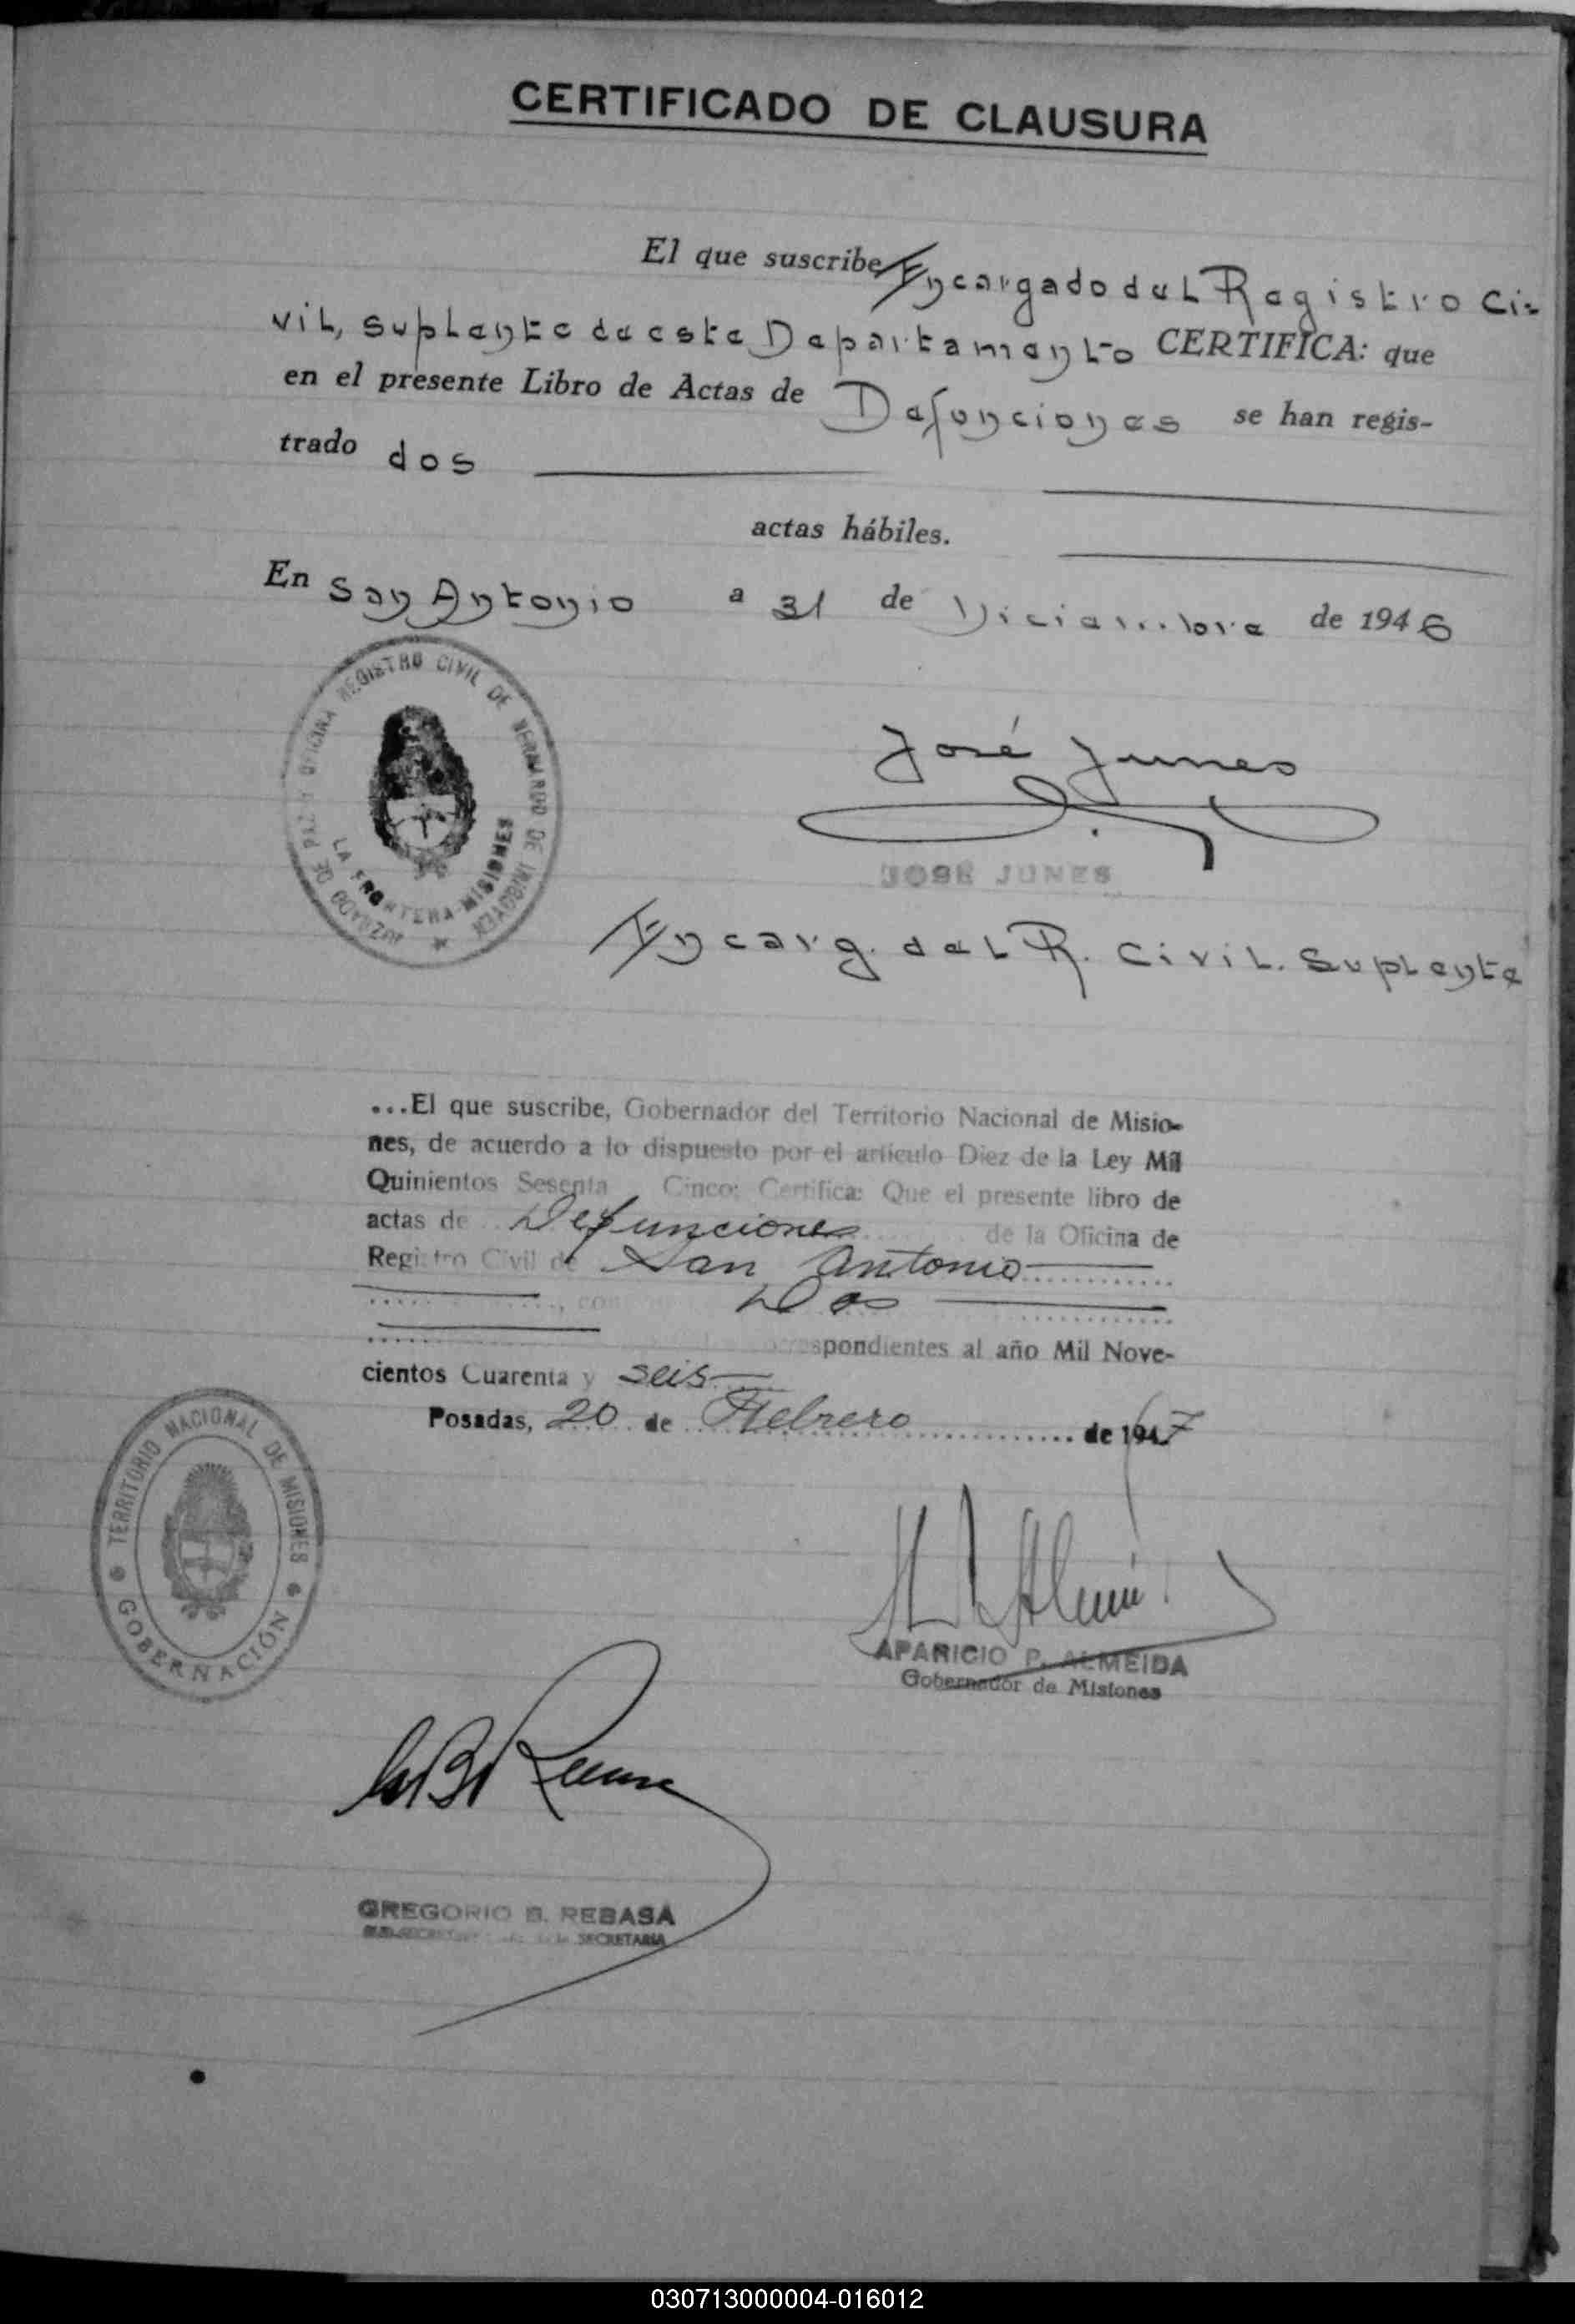 CERTIFICADO DE CLAUSURA
El que suscribe Encargado del Registro Ci-
vil, suplente de este Departamento CERTIFICA: que
en el presente Libro de Actas de Defunciones se han regis-
trado dos
actas hábiles.
En San Antonio a 31 de Diciembre de 1946
JUZGADO DE PAZ Y OFICINA REGISTRO CIVIL DE BERNARDO DE IRIGOYEN
LA FRONTERA-MISIONES
José Junes
JOSÉ JUNES
Encarg. del R. Civil. Suplente
...El que suscribe, Gobernador del Territorio Nacional de Misio-
nes, de acuerdo a lo dispuesto por el artículo Diez de la Ley Mil
Quinientos Sesenta Cinco; Certifica: Que el presente libro de
actas de Defunciones de la Oficina de
Registro Civil de San Antonio
Dos
correspondientes al año Mil Nove-
cientos Cuarenta y seis
Posadas, 20 de Febrero de 1947
TERRITORIO NACIONAL DE MISIONES
GOBERNACIÓN
APARICIO P. ALMEIDA
Gobernador de Misiones
GREGORIO B. REBASA
SECRETARIA
030713000004-016012